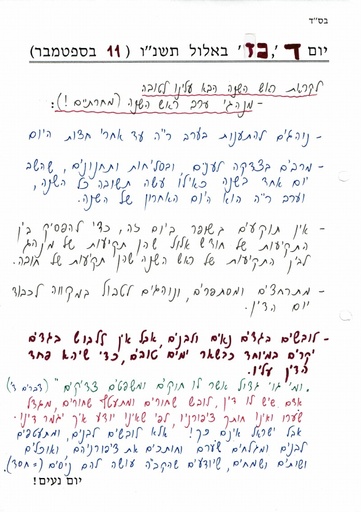 בס"ד
יום ד', כז' באלול תשנ"ו ( 11 בספטמבר)
לקראת ראש השנה הבא עלינו לטובה
- מנהגי ערב ראש השנה (מחרתיים!):
- נוהגים להתענות בערב ר"ה עד אחרי חצות היום
- מרבים בצדקה לעניים, ובסליחות ותחנונים, שהשב
יום אחד בשנה כאילו עשה תשובה כל השנה,
וערב ר"ה הוא היום האחרון של השנה.
- אין תוקעים בשופר ביום זה, כדי להפסיק בין
התקיעות של חודש אלול שהן תקיעות של מנהג
לבין התקיעות של ראש השנה שהן תקיעות של חובה.
- מתרחצים ומסתפרים, ונוהגים לטבול במקווה לכבוד
יום הדין.
- לובשים בגדים נאים ולבנים, אבל אין ללבוש בגדים
יקרים במיוחד כבשאר ימים טובים, כדי שיהא פחד
הדין עליו.
"ומי גוי גדול אשר לו חוקים ומשפטים צדיקים" (דברים ד)
אדם שיש לו דין, לובש שחורים ומתעטף שחורים, מגדל
שערו ואינו חותך ציפורניו, לפי שאינו יודע איך יגמר דינו.
אבל ישראל אינם כך! אלא לובשים לבנים, ומתעטפים
לבנים ומגלחים שערם וחותכים את ציפורניהם, ואוכלים
ושותים ושמחים, שיודעים שהקב"ה עושה להם ניסים (=חסד).
יום נעים!